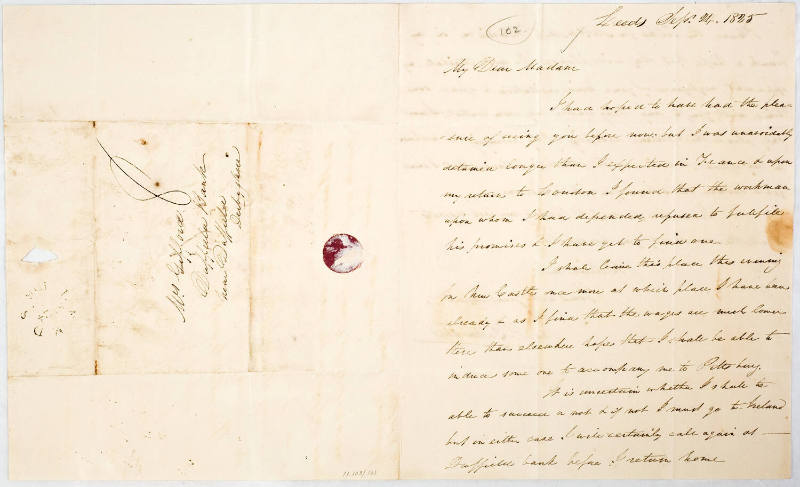 102
Leeds Sept. 24. 1825
My Dear Madam
I had hoped to have had the plea-
sure of seeing you before now but I was unavoidably
detained longer than I expected in France & upon
my return to London I found that the workman
upon whom I had depended refused to fulfill
his promises & I have yet to find one.
I shall leave this place this evening
for New Castle once more at which place I have been
already & as I find that the wages are much lower
there than elsewhere hope that I shall be able to
induce some one to accompany me to Pittsburg.
It is uncertain whether I shall be
able to succeed or not & if not I must go to Ireland
but in either case I will certainly call again at
Duffield bank before I return home
Mrs Gifford
Duffield Bank
near Duffield
Derbyshire